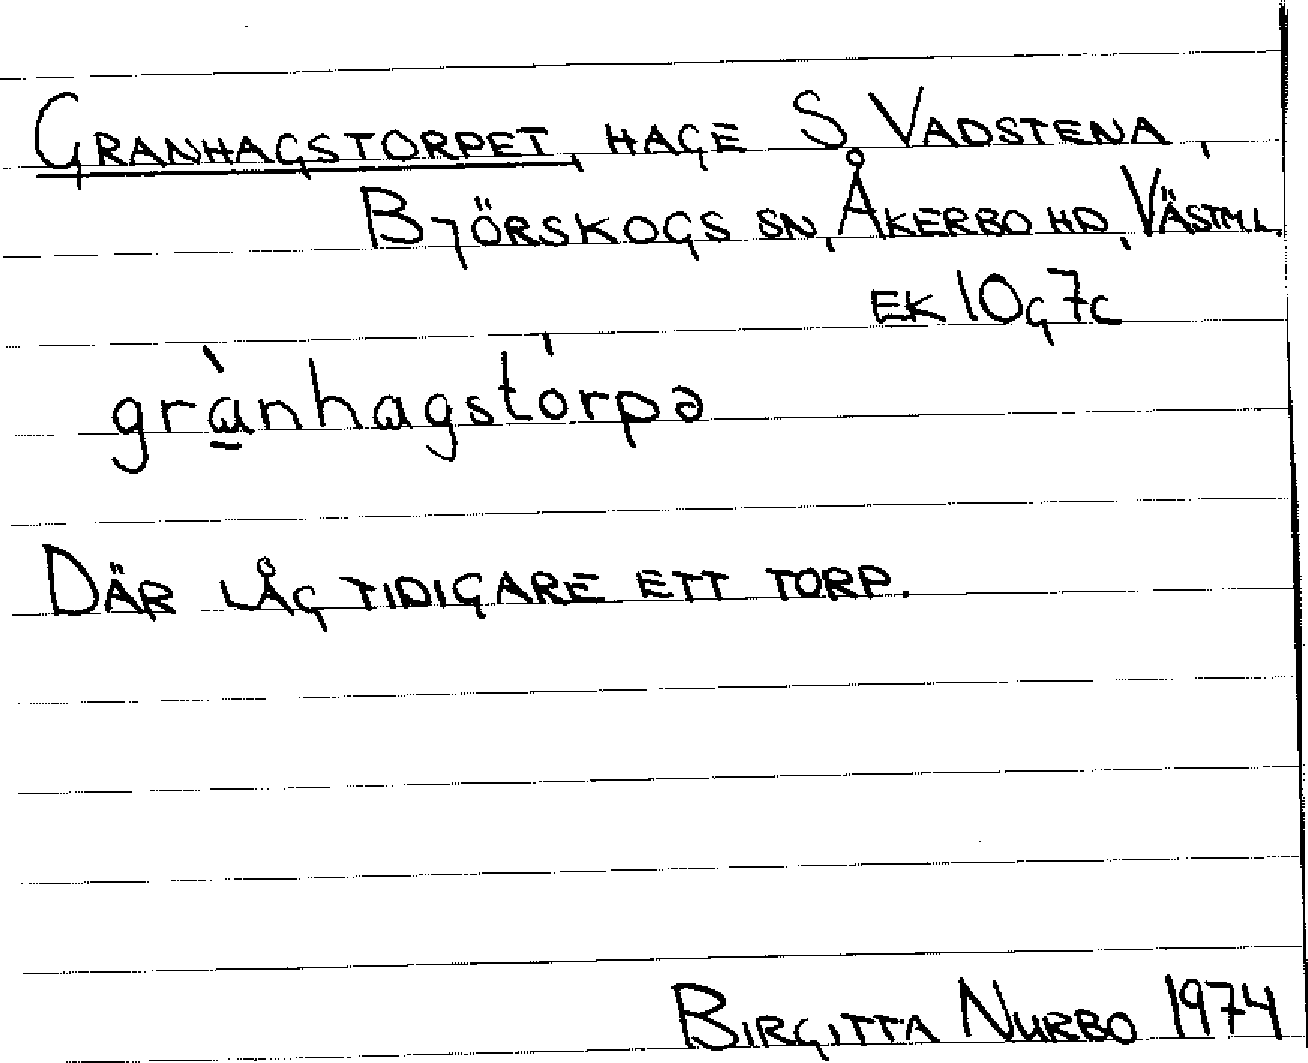 GRANHAGSTORPET, HAGE S VADSTENA,
BJÖRSKOGS SN, ÅKERBO HD, VÄSTML.
EK 10G7C
grànhagstórpə
DÄR LÅG TIDIGARE ETT TORP.
BIRGITTA NURBO 1974